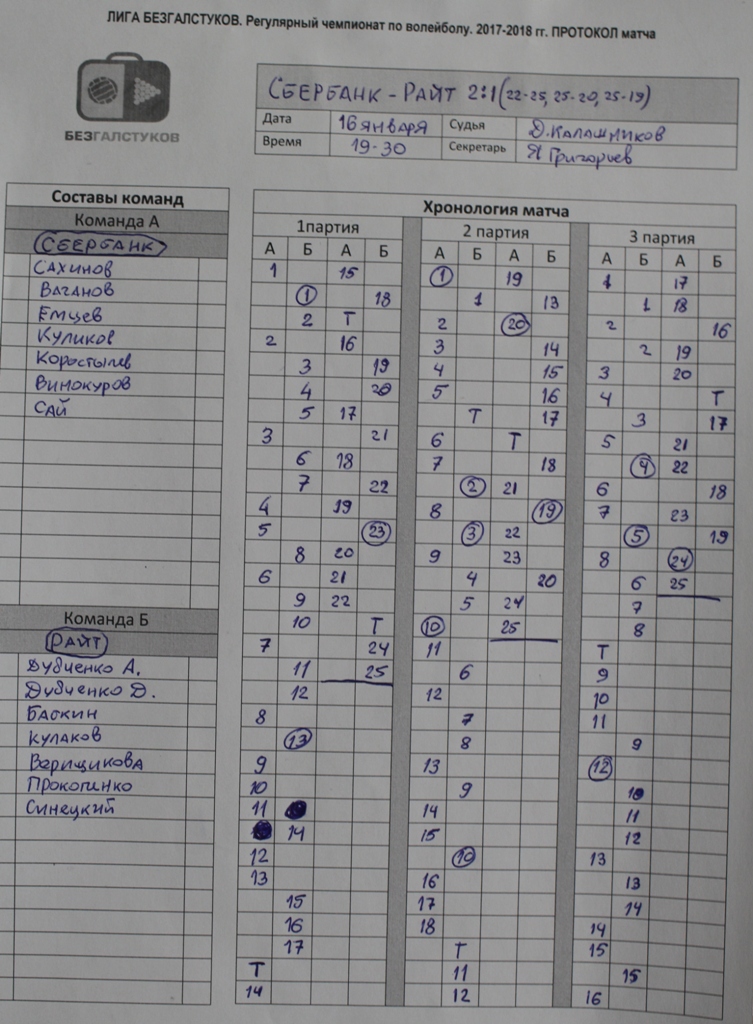 ЛИГА БЕЗГАЛСТУКОВ. Регулярный чемпионат по волейболу. 2017-2018 гг. ПРОТОКОЛ матча
БЕЗГАЛСТУКОВ
СБЕРБАНК - РАЙТ 2:1 (22-25, 25-20, 25-19)
Дата 16 ЯНВАРЯ Судья Д.КАЛАШНИКОВ
Время 19-30 Секретарь Я Григорьев
Составы команд
Команда А
СБЕРБАНК
САХИНОВ
ВАГАНОВ
ЕМЦЕВ
КУЛИКОВ
КОРОСТЫЛЕВ
ВИНОКУРОВ
САЙ
Команда Б
РАЙТ
ДУБЧЕНКО А.
ДУБЧЕНКО Д.
БАСКИН
КУЛАКОВ
ВЕРИЩИКОВА
ПРОКОПИНКО
СИНЕЦКИЙ
Хронология матча
1партия 2 партия 3 партия
А Б А Б А Б А Б А Б А Б
1 15 1 19 1 17
1 18 1 13 1 18
2 Т 2 20 2 16
2 16 3 14 2 19
3 19 4 15 3 20
4 20 5 16 4 Т
5 17 Т 17 3 17
3 21 6 Т 5 21
6 18 7 18 4 22
7 22 2 21 6 18
4 19 8 19 7 23
5 23 3 22 5 19
8 20 9 23 8 24
6 21 4 20 6 25
9 22 5 24 7
10 Т 10 25 8
7 24 11 Т
11 25 6 9
12 12 10
8 7 11
13 8 9
9 13 12
10 9 10
11 14 11
14 15 12
12 10 13
13 16 13
15 17 14
16 18 14
17 Т 15
Т 11 15
14 12 16